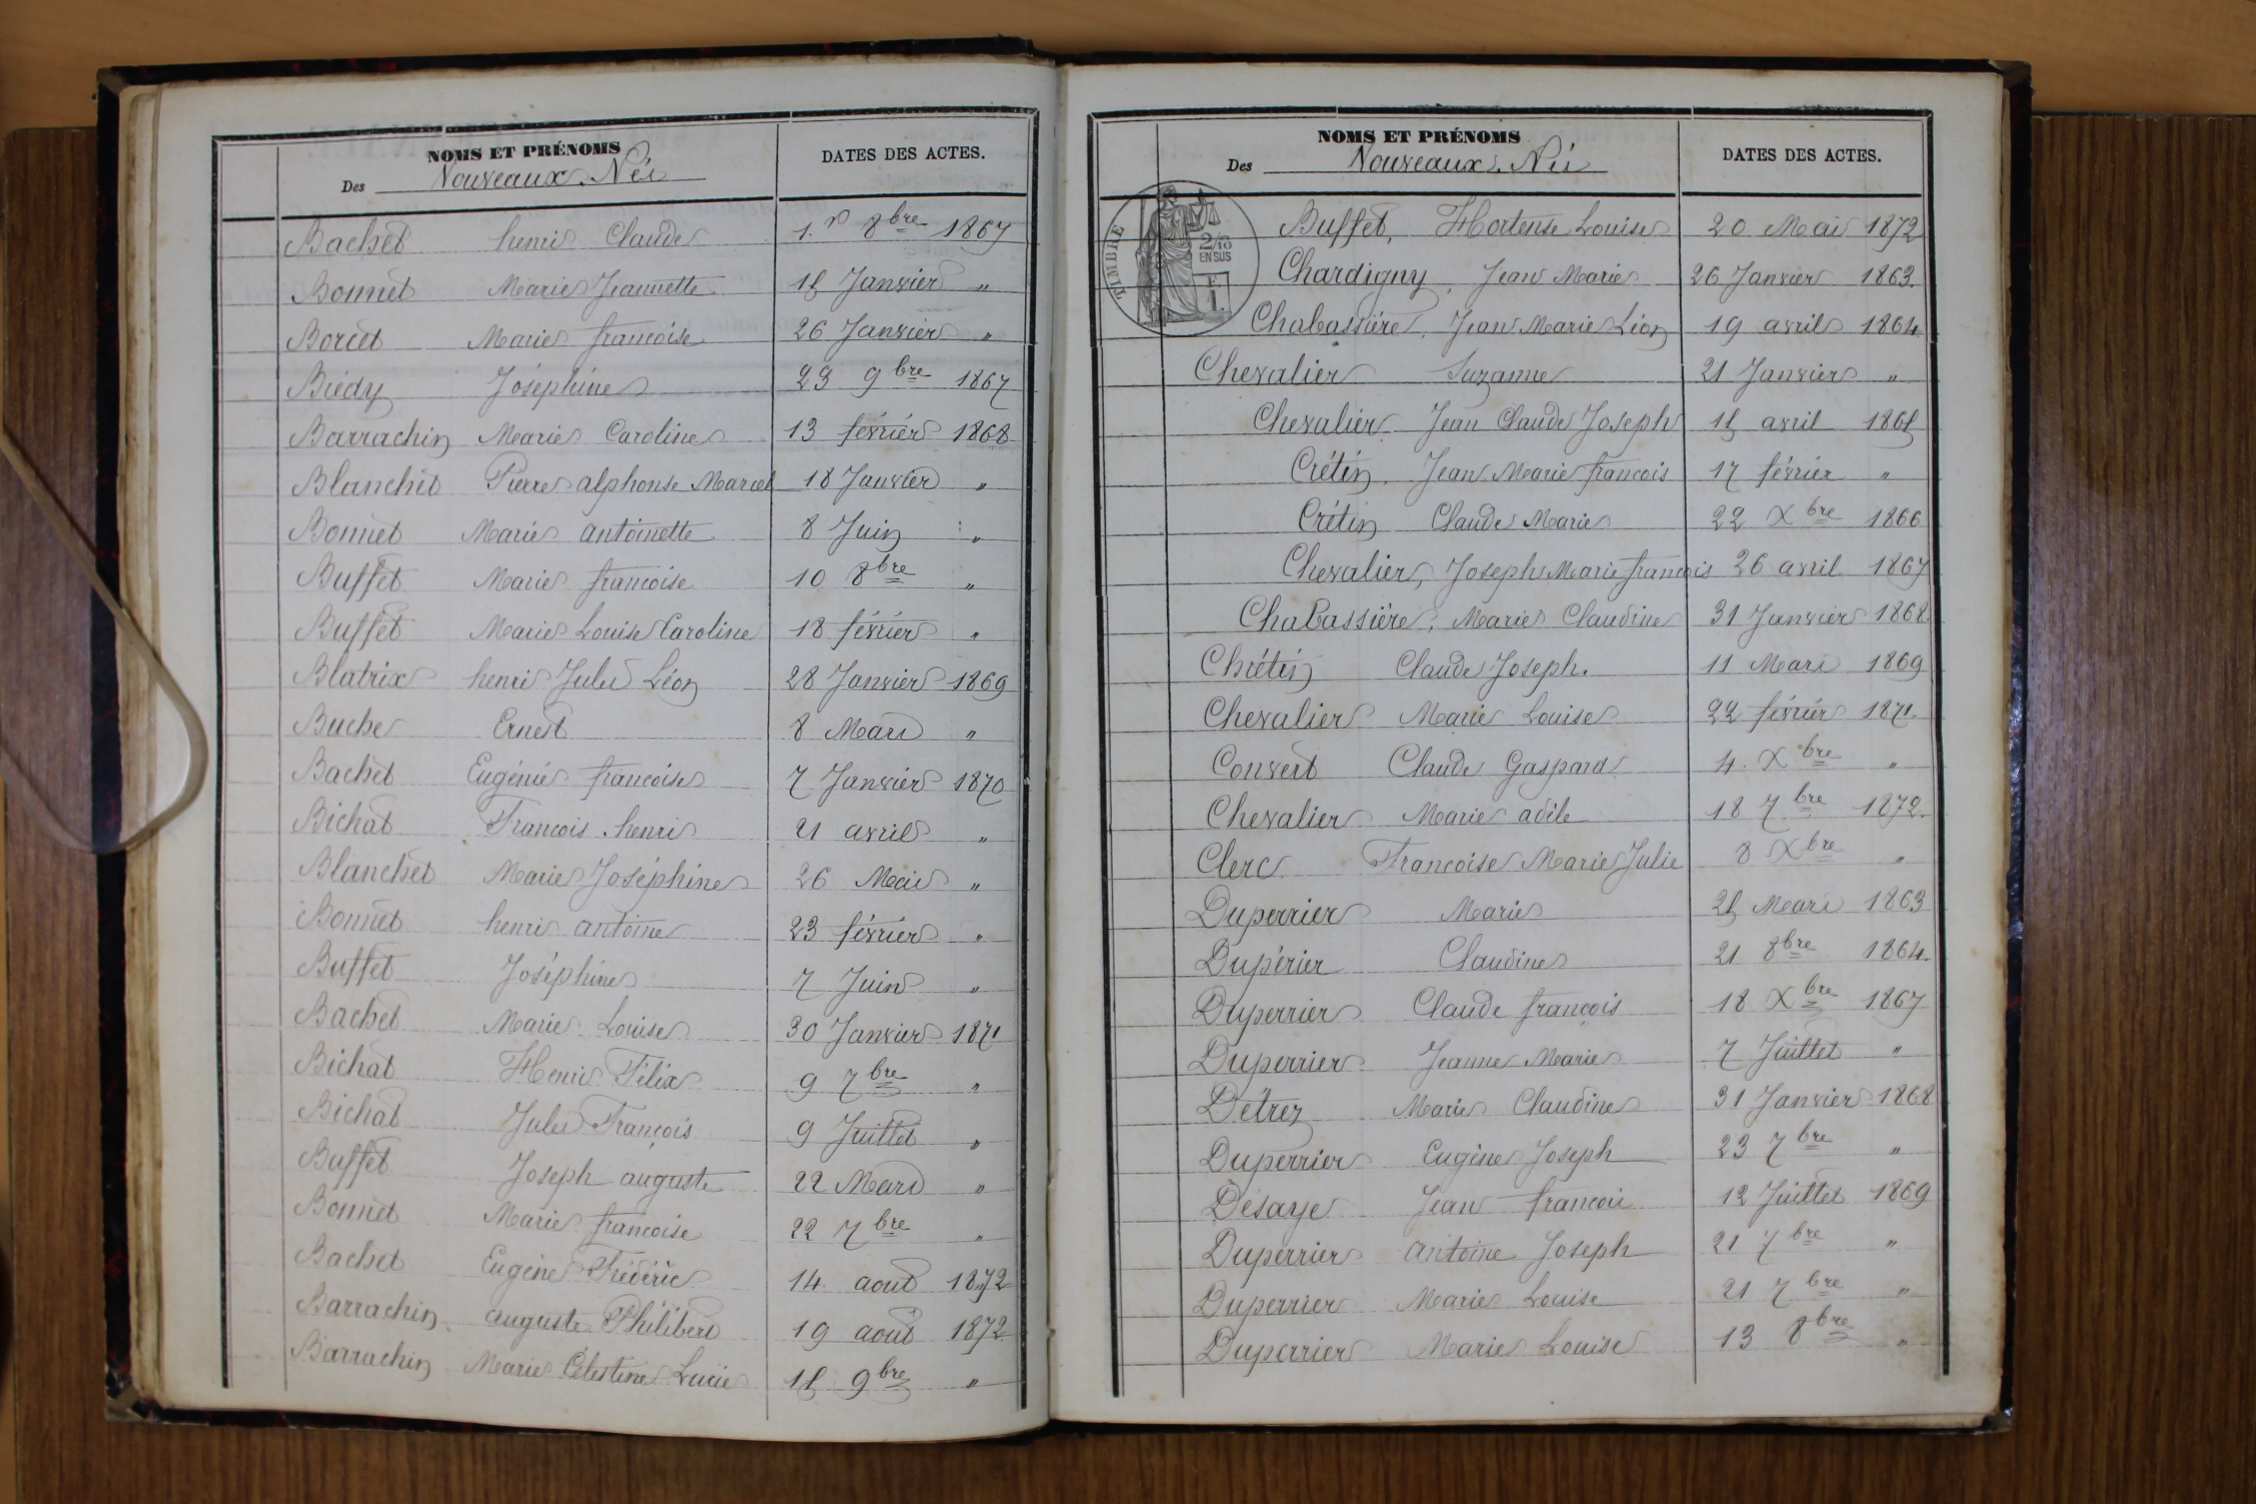 NOMS ET PRÉNOMS
Des Nouveaux. Nés
DATES DES ACTES.
Bachet henri Claude 1.er 8bre 1867
Bonnet Marie Jeannette 15 Janvier "
Borcet Marie francoise 26 Janvier "
Biédy Joséphine 23 9bre 1867
Barrachin Marie Caroline 13 février 1868
Blanchet Pierre alphonse Marcel 18 Janvier "
Bonnet Marie antoinette 8 Juin "
Buffet Marie francoise 10 8bre "
Buffet Marie Louise Caroline 18 février "
Blatrix henri Jules Léon 28 Janvier 1869
Buche Ernest 8 Mars "
Bachet Eugénie francoise 7 Janvier 1870
Bichat Francois henri 21 avril "
Blanchet Marie Joséphine 26 Mai "
Bonnet henri antoine 23 février "
Buffet Joséphine 7 Juin "
Bachet Marie Louise 30 Janvier 1871
Bichat Henri Félix 9 7bre "
Bichat Jules François 9 Juillet "
Buffet Joseph auguste 22 Mars "
Bonnet Marie francoise 22 7bre "
Bachet Eugène Frédéric 14 aout 1872
Barrachin auguste Philibert 19 aout 1872
Barrachin Marie Célestine Lucie 15 9bre "
NOMS ET PRÉNOMS
Des Nouveaux. Nés
DATES DES ACTES.
TIMBRE
2/10
EN SUS
F.
1.
Buffet, Hortense Louise 20 Mai 1872
Chardigny, Jean Marie 26 Janvier 1863.
Chabassière, Jean Marie Léon 19 avril 1864
Chevalier Suzanne 21 Janvier "
Chevalier Jean Claude Joseph 15 avril 1865
Crétin. Jean Marie francois 17 février "
Crétin Claude Marie 22 Xbre 1866
Chevalier, Joseph Marie francois 26 avril 1867
Chabassière, Marie Claudine 31 Janvier 1868
Chrétin Claude Joseph. 11 Mars 1869
Chevalier Marie Louise 22 février 1871.
Convert Claude Gaspard 4. Xbre "
Chevalier Marie adèle 18 7bre 1872.
Clerc Francoise Marie Julie 8 Xbre "
Duperrier Marie 25 Mars 1863
Dupérier Claudine 21 8bre 1864.
Duperrier Claude françois 18 Xbre 1867
Duperrier Jeanne Marie 7 Juillet "
Détrez Marie Claudine 31 Janvier 1868
Duperrier Eugène Joseph 23 7bre "
Désaye Jean francois 12 Juillet 1869
Duperrier antoine Joseph 21 7bre "
Duperrier Marie Louise 21 7bre "
Duperrier Marie Louise 13 8bre "